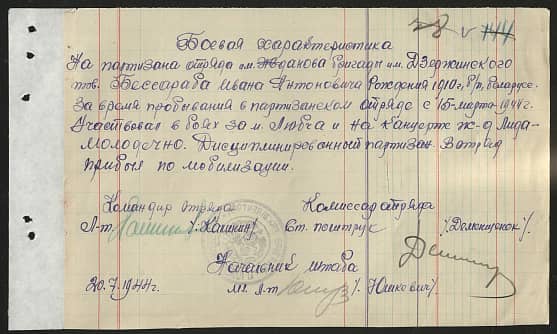 78 v 144
Боевая характеристика
На партизана отряда им. Жданова бригады им. Дзержинского
тов. Бессараба Ивана Антоновича рождения 1910 г. б/п, беларус.
За время пребывания в партизанском отряде с 15-марта-1944 г.
Участвовал в боях за м. Любча и на
ж-д Лида-
Молодечно. Дисциплинированный партизан. В отряд
прибыл по мобилизации.
Командир отряда Комиссар отряда
Л-т /Кашкин/ Ст. политрук
Начальник штаба
20.7.1944 г. мл. л-т /Юшкович/.